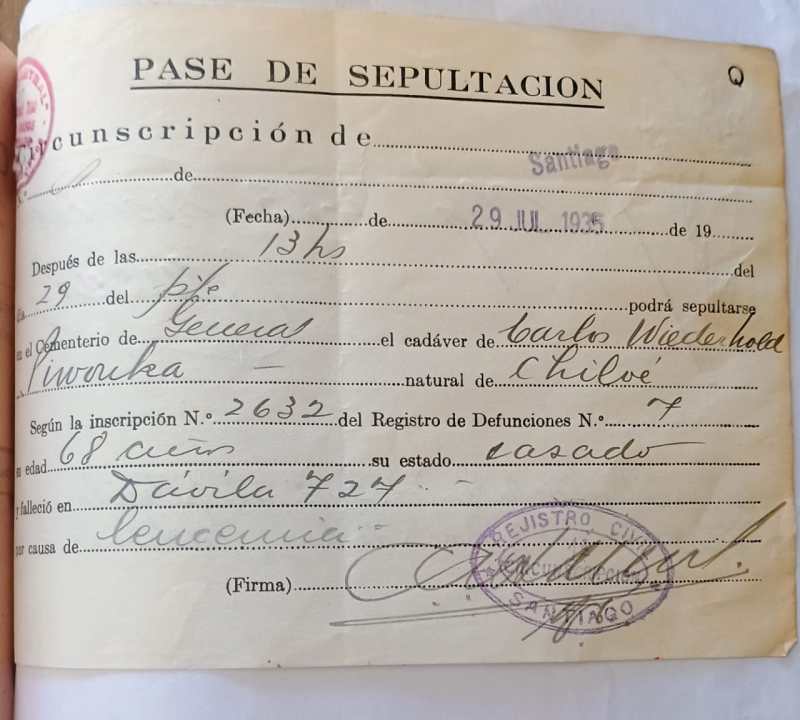 PASE DE SEPULTACION
Q
Circunscripción de Santiago
N.º de
(Fecha) de 29 JUL. 1935 de 19
Después de las 13 hs del
día 29 del pte podrá sepultarse
en el Cementerio de General el cadáver de Carlos Wiederhold
Piwonka — natural de Chiloé
Según la inscripción N.º 2632 del Registro de Defunciones N.º 7
su edad 68 años su estado casado
y falleció en Dávila 727
por causa de leucemia
(Firma)
REJISTRO CIVIL
SANTIAGO